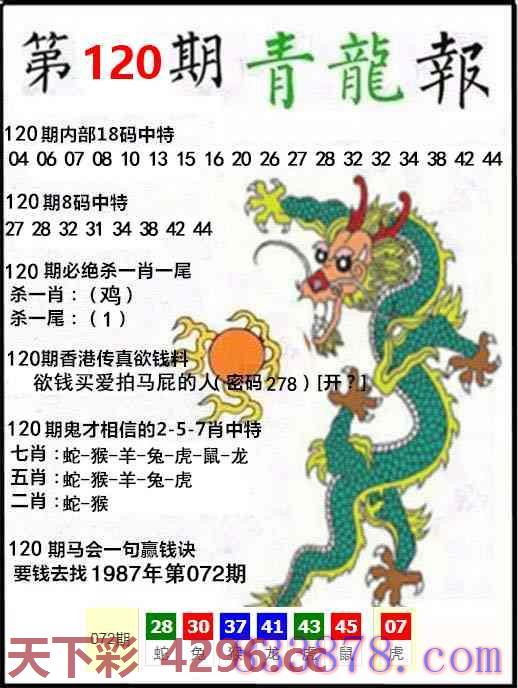 第120期 青龍報
120期内部18码中特
04 06 07 08 10 13 15 16 20 26 27 28 32 32 34 38 42 44
120期8码中特
27 28 32 31 34 38 42 44
120期必绝杀一肖一尾
杀一肖：(鸡)
杀一尾：(1)
120期香港传真欲钱料
欲钱买爱拍马屁的人(密码278)[开?]
120期鬼才相信的2-5-7肖中特
七肖：蛇-猴-羊-兔-虎-鼠-龙
五肖：蛇-猴-羊-兔-虎
二肖：蛇-猴
120期马会一句赢钱诀
要钱去找1987年第072期
072期 28 30 37 41 43 45 07
蛇 兔 猴 龙 虎 鼠 虎
天下彩 4296.cc
3878.com